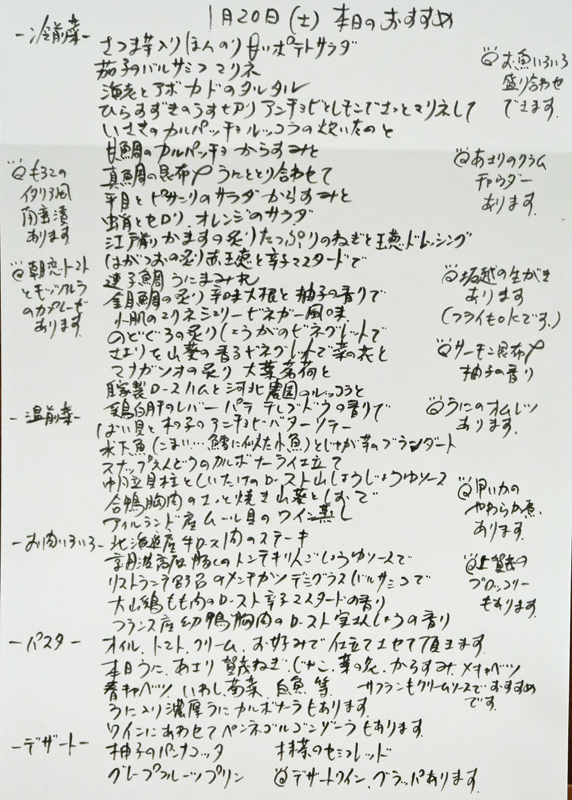 1月20日(土) 本日のおすすめ
-冷前菜-
さつま芋入りほんのり甘いポテトサラダ
茄子のバルサミコマリネ
海老とアボカドのタルタル
ひらすずきのうす切り アンチョビとレモンでさっとマリネして
いさきのカルパッチョ ルッコラの炊いたのと
甘鯛のカルパッチョ からすみと
真鯛の昆布〆 うにととり合わせて
平目とピサンリのサラダ からすみと
蛸とセロリ、オレンジのサラダ
江戸前かますの炙り たっぷりのねぎと玉葱ドレッシング
はがつおの炙り 赤玉葱と辛子マスタードで
連子鯛 うにまみれ
金目鯛の炙り 辛味大根と柚子の香りで
小肌のマリネ シェリービネガー風味
のどぐろの炙り しょうがのビネグレットで
さよりを山葵の香るビネグレットで 菜の花と
マナガツオの炙り 大葉茗荷と
自家製ロースハムと河北農園のルッコラと
◎お魚いろいろ
盛り合わせ
できます。
◎もろこの
イタリア風
南蛮漬
あります
◎朝恋トマト
とモッツァレラ
のカプレーゼ
あります。
◎あさりのクラム
チャウダー
あります。
◎坂越の生がき
あります
(フライもOKです。)
◎サーモン昆布〆
柚子の香り
-温前菜-
鶏白肝のレバーパテ デーブドウの香りで
ばい貝と木の子のアンチョビバターソテー
氷下魚(こまい…鱈に似た小魚)とじゃが芋のブランダード
スナップえんどうのカルボナーラ仕立て
帆立貝柱としいたけのロースト 山しょうじょうゆソース
合鴨胸肉のさっと焼き 山葵としおで
アイルランド産ムール貝のワイン蒸し
◎うにのオムレツ
あります。
◎甲いかの
やわらか煮、
あります。
◎上賀茂の
ブロッコリー
もあります。
-お肉いろいろ-
北海道産牛ロース肉のステーキ
京丹波高原豚のトンテキ りんごしょうゆソースで
リストランテ野呂のメンチカツ デミグラスバルサミコで
大山鶏もも肉のロースト 辛子マスタードの香り
フランス産幼鴨胸肉のロースト 実さんしょうの香り
-パスタ-
オイル、トマト、クリーム、お好みで仕立てさせて頂きます
本日うに、あさり 賀茂ねぎ、じゃこ、菜の花、からすみ、メキャベツ
春キャベツ いわし 菊菜 白魚 等
サフランもクリームソースでおすすめ
です。
うに入り濃厚うにカルボナーラもあります。
ワインにあわせてペンネゴルゴンゾーラもあります。
-デザート-
柚子のパンナコッタ 抹茶のセミフレッド
グレープフルーツプリン ◎デザートワイン、グラッパあります。